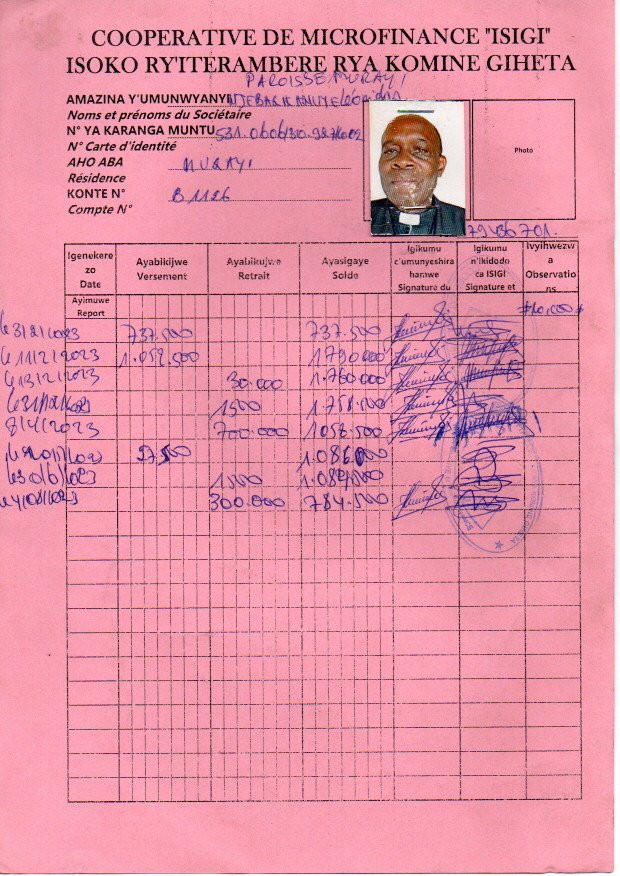 COOPERATIVE DE MICROFINANCE "ISIGI"
ISOKO RY'ITERAMBERE RYA KOMINE GIHETA
PAROISSE MURAYI
AMAZINA Y'UMUNWYANYI
Noms et prénoms du Sociétaire
N° YA KARANGA MUNTU 531.0606/30.
N° Carte d'identité
AHO ABA MURAYI
Résidence
KONTE N° B 1126
Compte N°
Photo
Igenekere zo Date
Ayabikijwe Versement
Ayabikujwe Retrait
Ayasigaye Solde
Igikumu c'umunyeshira hamwe Signature du
Igikumu n'ikidodo ca ISIGI Signature et
Ivyihwezwa Observations
Ayimuwe Report
3/2/2023 737.500 737.500
11/2/2023 1.052.500 1790000
13/2/2023 30.000 1.760000
1500 1.758.500
8/4/2023 700.000 1058.500
27.500 1.086.000
1500 1.084.500
300.000 784.500